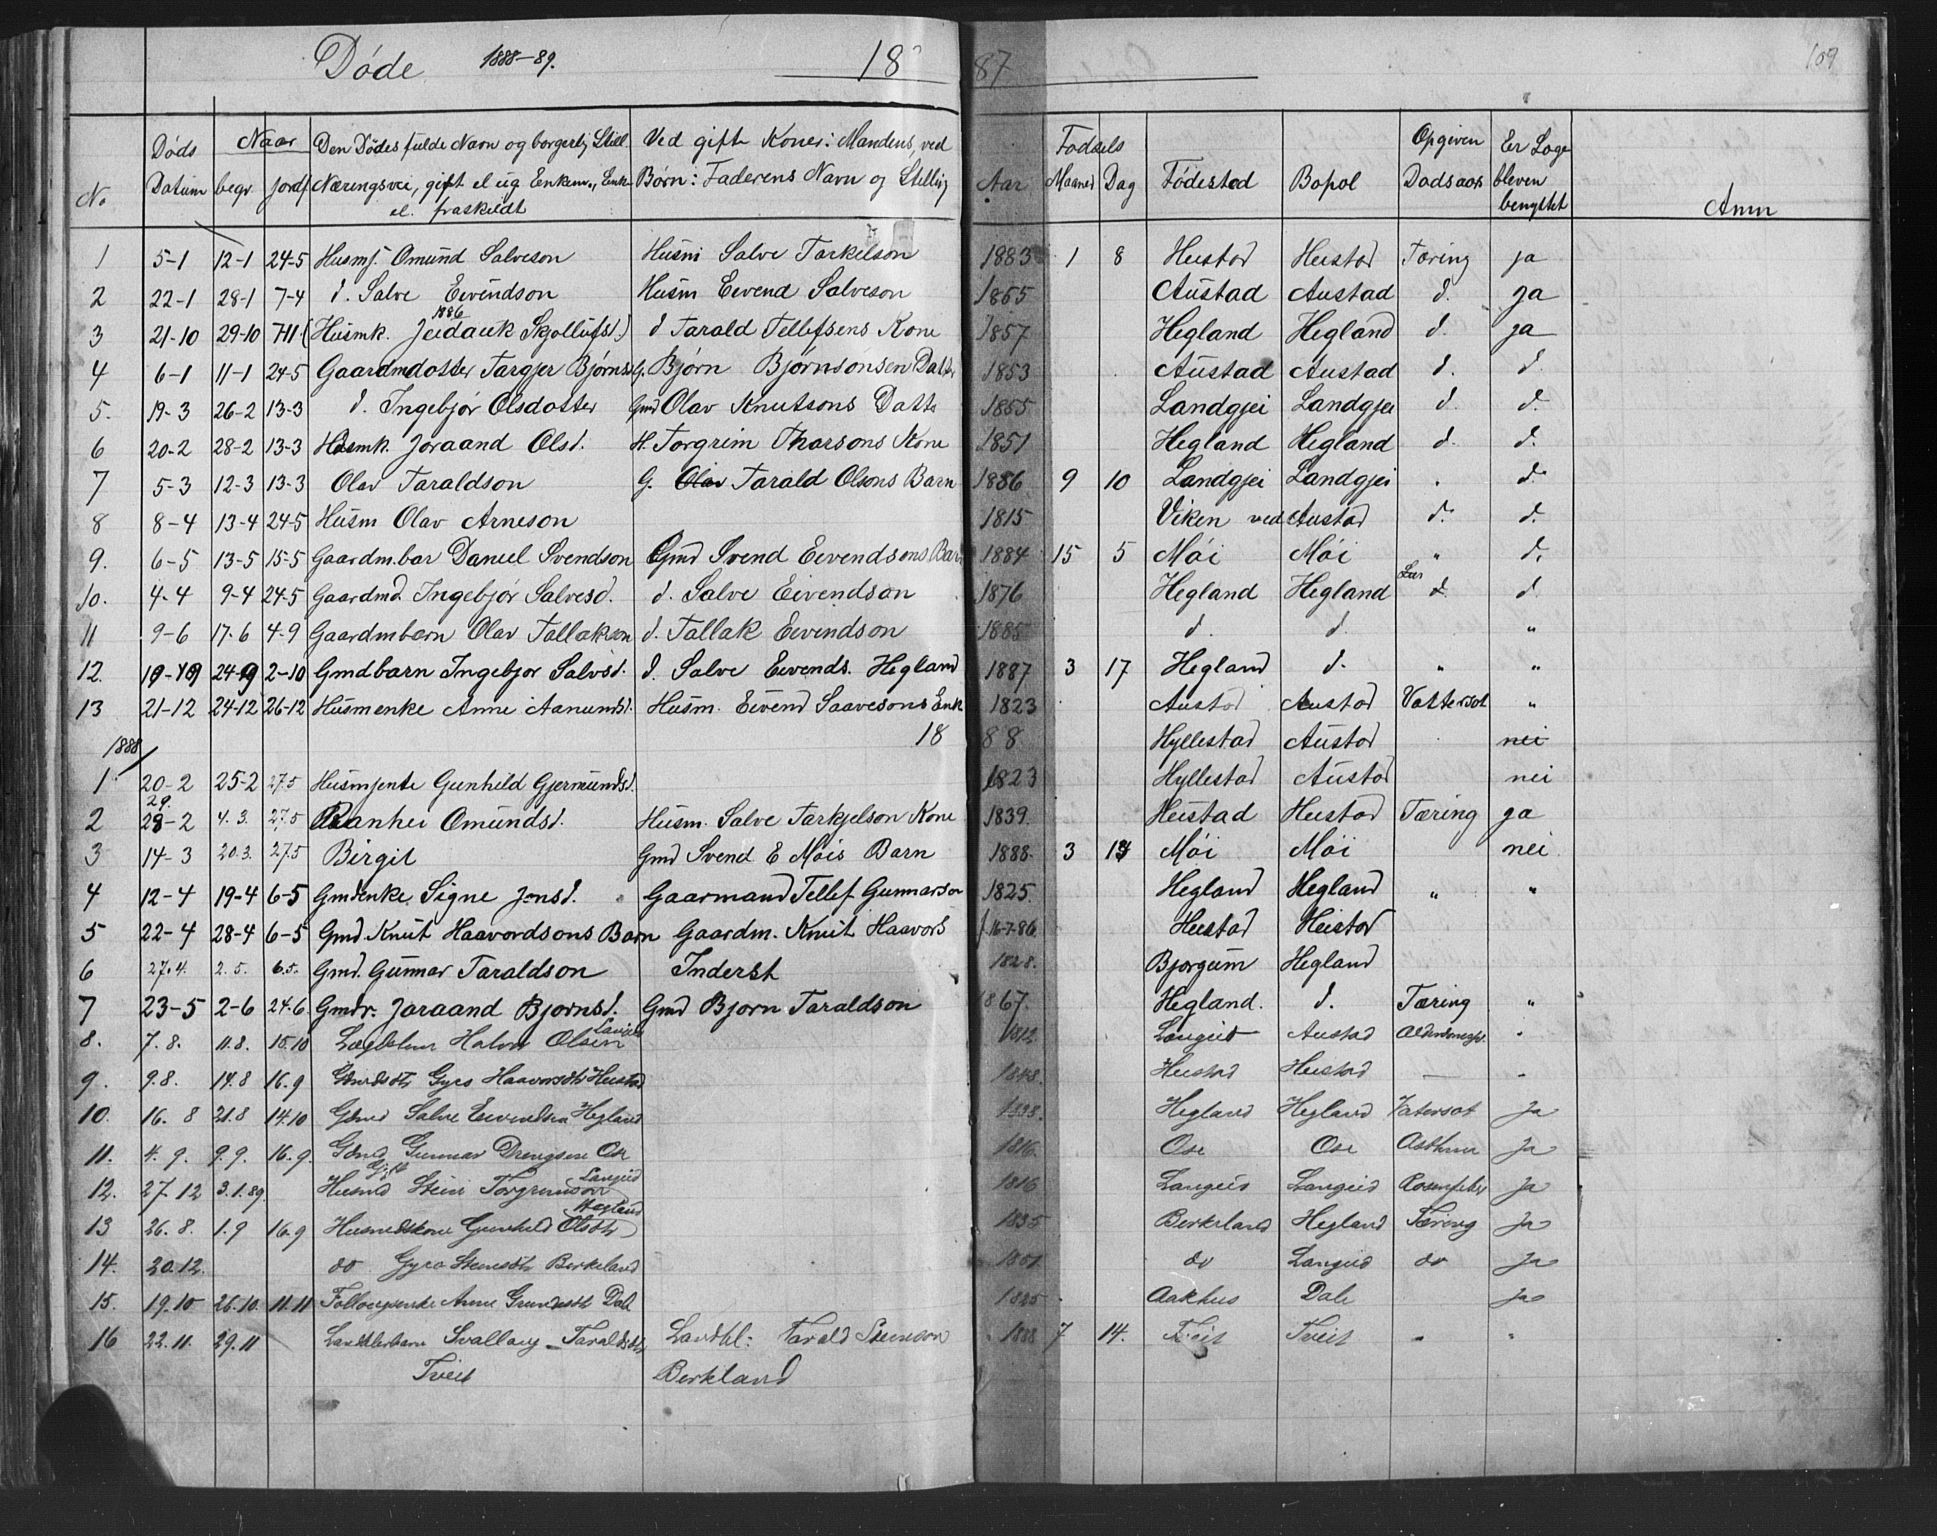 Døde 1888-89. 1887 109
No. Døds Datum Naar begr. jordf. Den Dødes fulde Navn og borgerlig Still. Næringsvei, gift el ug Enkem., Enk. el. fraskildt Ved gift Koner: Mandens, ved Børn: Faderens Navn og Stilling Aar Fødsels Maaned Dag Fødested Bopæl Opgiven Dødsaars Er Læge bleven benyttet Anm
1 5-1 12-1 24-5 Husmf. Omund Salveson Husm Salve Tarkelson 1883 1 8 Heistad Heistad Tæring ja
2 22-1 28-1 7-4 d. Salve Eivendson Husm Eivend Salveson 1855 Austad Austad d. ja
3 21-10 29-10 7-11 (Husmk. Jeidauk Skjollufsd.) 1886 d Tarald Tellefsens Kone 1857 Hegland Hegland d. ja
4 6-1 11-1 24-5 Gaardmdotter Targjer Bjørnsd G. Bjørn Bjørnsonsen Datter 1853 Austad Austad d. d.
5. 19-3 26-2 13-3 d. Ingebjør Olsdotter Gmd Olav Knutsons Datte 1855 Landgjei Landgjei d. d.
6 20-2 28-2 13-3 Husmk. Joraand Olsd. H. Torgrim Tharsons Kone 1851 Hegland Hegland d. d.
7 5-3 12-3 13-3 Olav Taraldson G. Olav Tarald Olsons Barn 1886 9 10 Landgjei Landgjei . d.
8 8-4 13-4 24-5 Husm Olav Arneson 1815 Viken ved Austad d. d.
9. 6-5 13-5 15-5 Gaardm.bar Daniel Svendson Gmd Svend Eivendsons Bar 1884 15 5 Mói Mói " d.
10. 4-4 9-4 24-5 Gaardmd. Ingebjør Salvesd. d. Salve Eivendson 1876 Hegland Hegland d. d.
11 9-6 17-6 4-9 Gaardmbarn Olav Tallakson d. Tallak Eivendson 1885 d. d. "
12. 19-19 24-9 2-10 Gmdbarn Ingebjor Salvsd. d. Salve Eivends. Hegland 1887 3 17 Hegland d. " "
13 21-12 24-12 26-12 Husmenke Anne Aanundsd. Husm. Eivend Saavesons Enk 1823 Austad Austad Vattersot "
1888 1888 Hyllestad Austad nei
1 20-2 25-2 27.5 Husmjente Gunhild Gjermundsd. 1823 Hyllestad Austad nei
2 29. 28-2 4.3. 27.5 Ranhei Omundsd. Husm. Salve Tarkjelson Kone 1839. Heistad Heistad Tæring ja
3 14-3 20.3. 27.5 Birgit Gmd Svend E Móis Barn 1888. 3 13 Mói Mói nei
4 12-4 19-4 6-5 Gmdenke Signe Jonsd. Gaarmand Tellef Gunnarson 1825. Hegland Hegland " "
5 22-4 28-4 6-5 Gmd. Knut Haavordsons Barn Gaardm. Knut Haavors 16-7-86 Heistad Heistad
6 27.4. 2.5. 6.5. Gmd. Gunnar Taraldson Inderst 1828. Bjorgum Hegland
7 23-5 2-6 24.6. Gmdr. Joraand Bjornsd. Gmd Bjorn Taraldson 1867. Hegland. d. Tæring "
8. 7.8. 11.8. 15.10 Lægdslem Halvor Olsen Langeid 1812. Langeid Austad "
9. 9.8. 14.8 16.9 Gmdsdtr Gyro Haavorsdtr Heistad 1848. Heistad Heistad — "
10. 16.8 21.8 14.10 Gdmd Salve Eivendsen Hegland Hegland Hegland Vatersot Ja
11. 4.9. 9.9. 16.9. Gdmd Gunnar Drengsen Ose 1816. Ose Ose Asthma Ja
12. 27.12 3.1.89. Husmd Stein Torgrimson Langeid 1816 Langeid Langeid Rosenfeber Ja
13 26.8. 1.9 16.9 Husmdskone Gunhild Olsdtr Hegland 1835 Birkeland Hegland Tæring Ja
14. 20.12. do Gyro Steinsdtr Birkeland 1851 do Langeid do Ja
15. 19.10 26.10. 11.11 Anne Dale 1825 Aakhus Dale Ja
16 22.11. 29.11 Svallaug Taraldsdtr Landhl: Tarald Steinson 1888 7 14. Tveit Tveit " "
Tveit Birkland